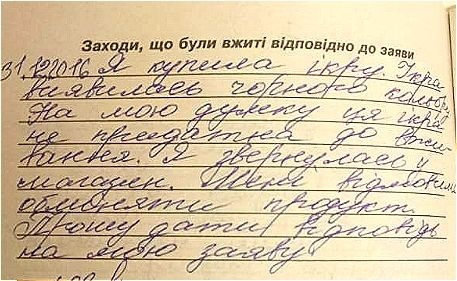 Заходи, що були вжиті відповідно до заяви
31.12.2016 Я купила ікру. Ікра
виявилась чорного кольору.
На мою думку ця ікра
не придатна до вжи-
вання. Я звернулась у
магазин. Мені відмовили
обміняти продукт.
Прошу дати відповідь
на мою заяву.